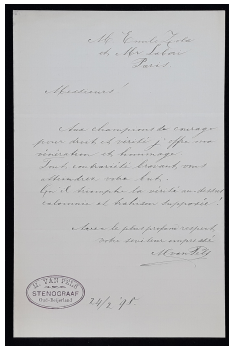 M. Emile Zola
et Mr Labori
Paris
Messieurs!
Aux champions du courage
pour droit et vérité j'offre ma
vénération et hommage
Tout contrariété bravant, vous
atteindrez votre but.
Qu'il triomphe la vérité
calomnie et trahison supposée!
Avec le plus profond respect,
votre serviteur empressé
M van Pels
M. VAN PELS
STENOGRAAF
24/2 '98.